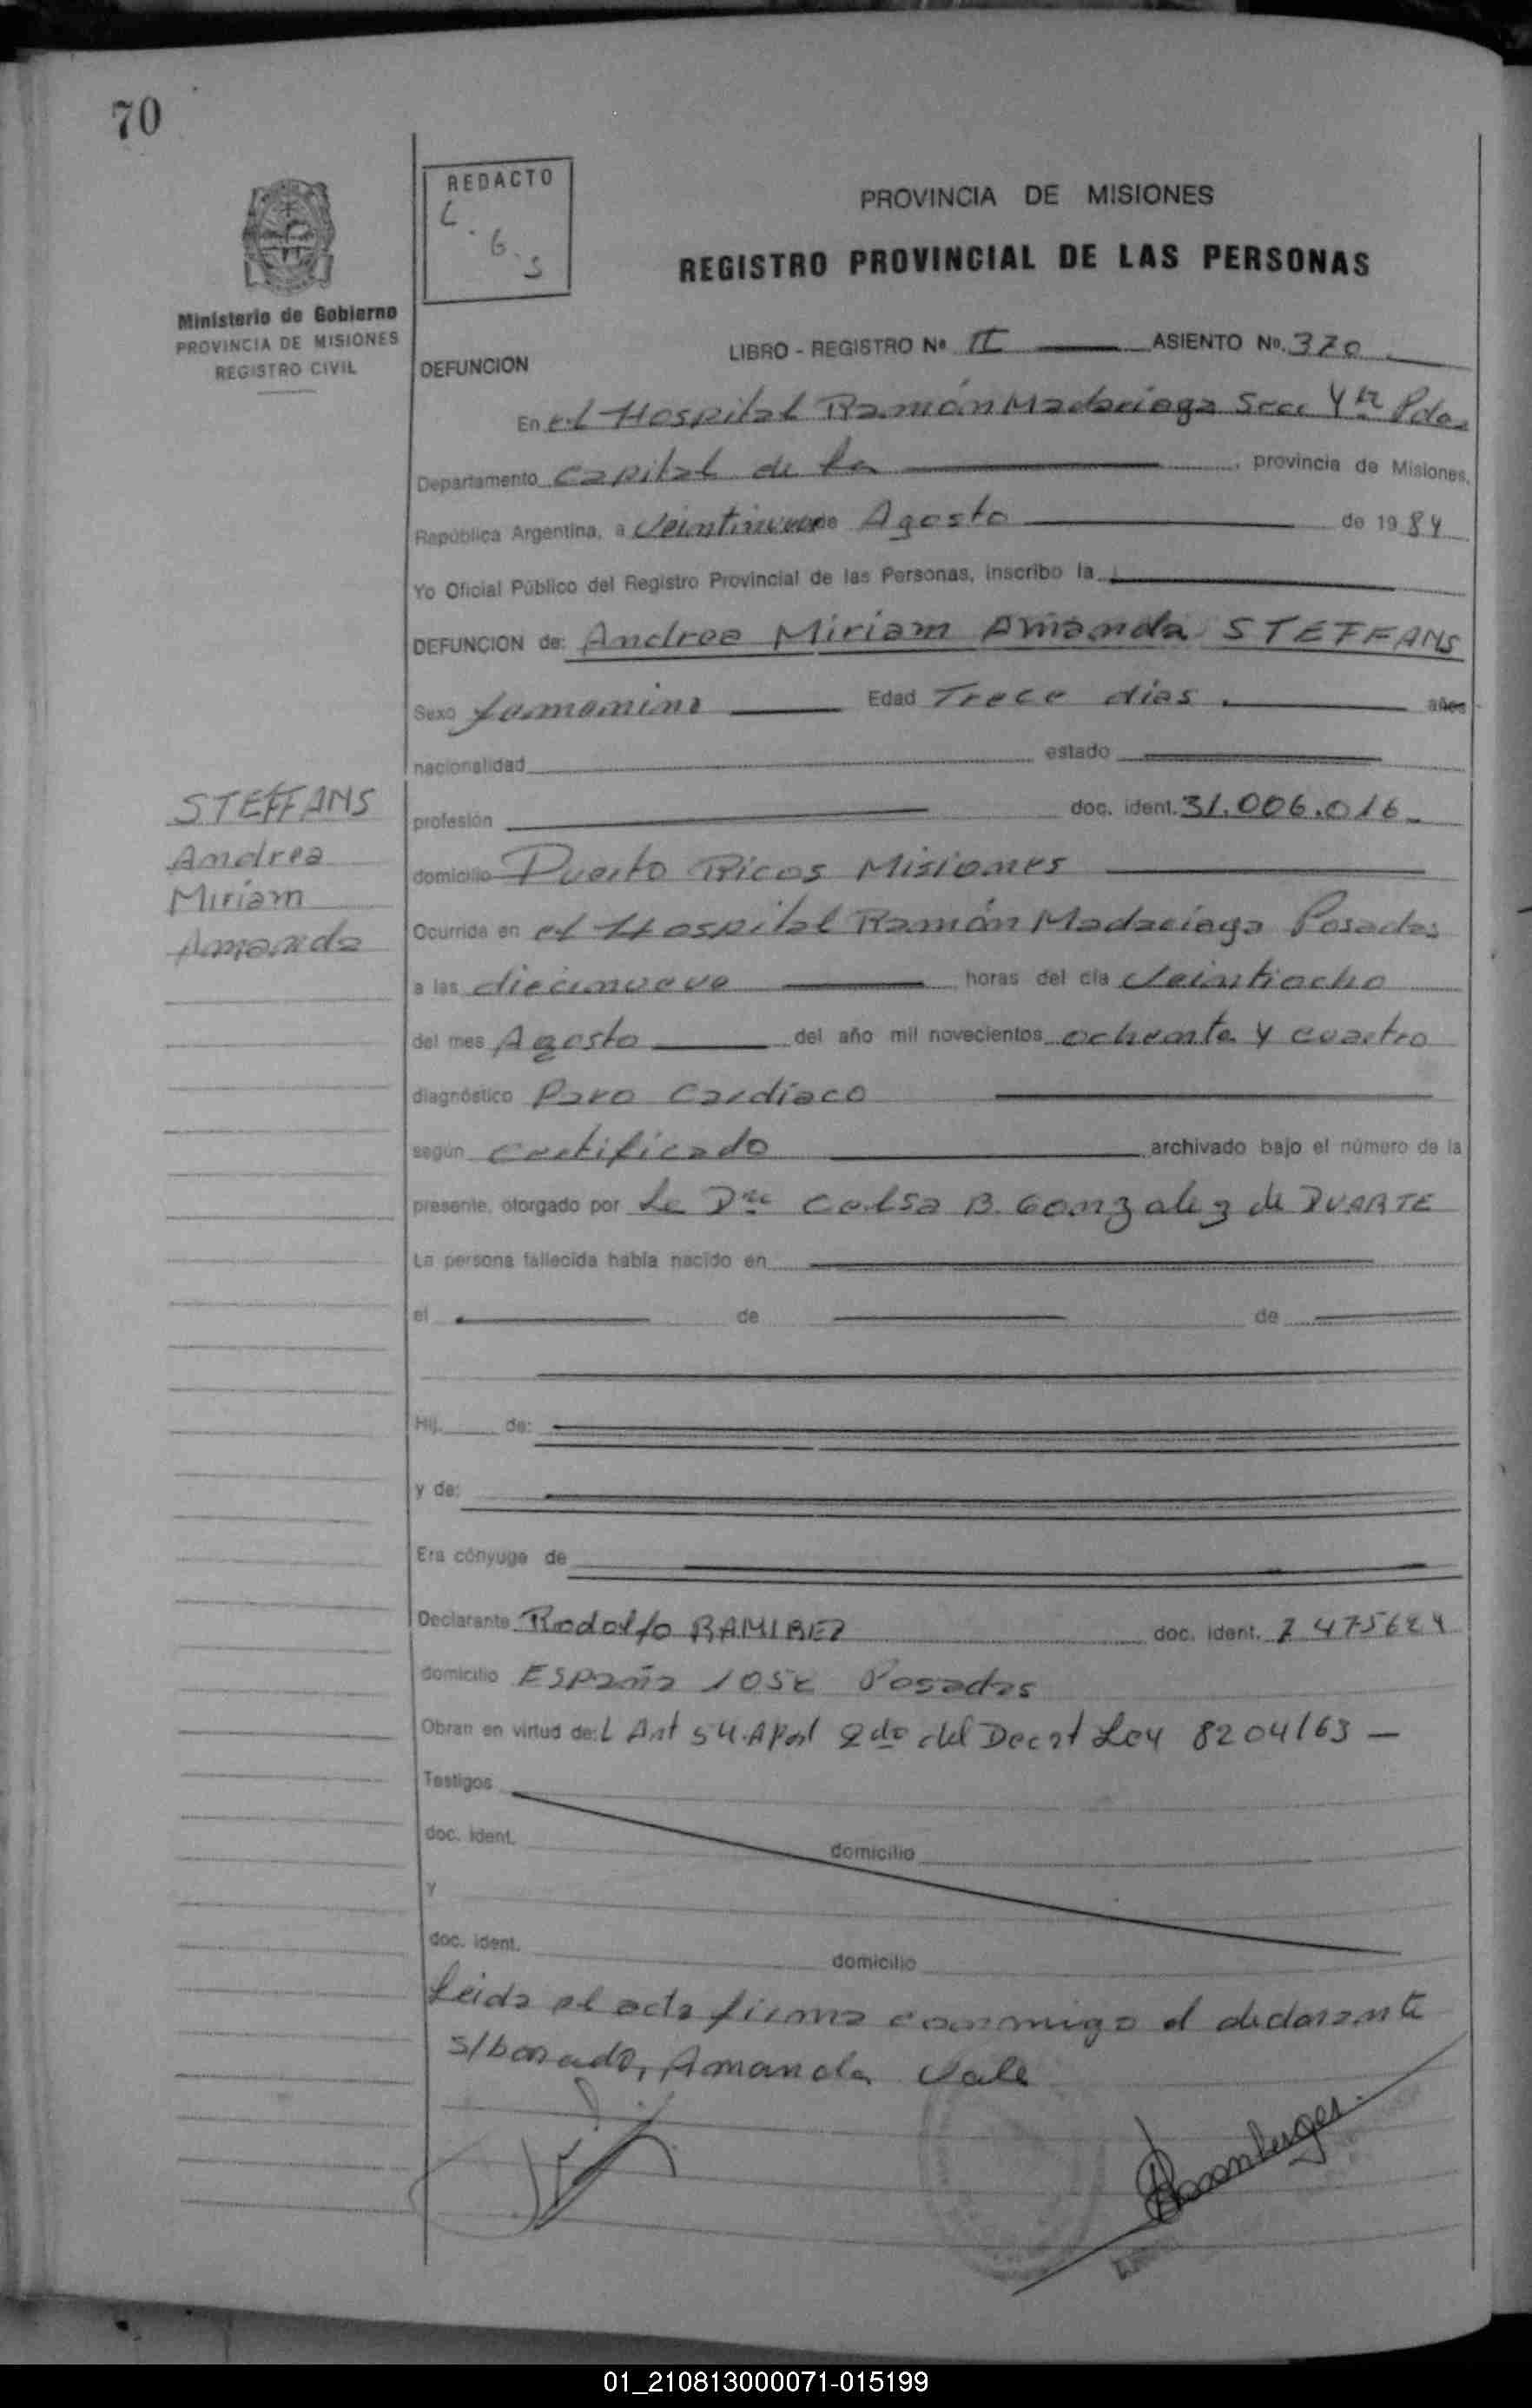 70
REDACTO
L. G. S
PROVINCIA DE MISIONES
REGISTRO PROVINCIAL DE LAS PERSONAS
Ministerio de Gobierno
PROVINCIA DE MISIONES
REGISTRO CIVIL
LIBRO - REGISTRO Nº II ASIENTO Nº. 370
DEFUNCION
En el Hospital Ramón Madariaga Secc 4ta Pdas
Departamento Capital de la provincia de Misiones,
República Argentina, a Veintinueve Agosto de 1984
Yo Oficial Público del Registro Provincial de las Personas, inscribo la
DEFUNCION de: Andrea Miriam Amanda STEFFANS
Sexo femenino Edad Trece días años
nacionalidad estado
STEFFANS
Andrea
Miriam
Amanda
profesión doc. ident. 31.006.016
domicilio Puerto Ricos Misiones
Ocurrida en el Hospital Ramón Madariaga Posadas
a las diecinueve horas del día Veintiocho
del mes Agosto del año mil novecientos ochenta y cuatro
diagnóstico Paro Cardíaco
según certificado archivado bajo el número de la
presente, otorgado por La Dra Celsa B. Gonzalez de DUARTE
La persona fallecida había nacido en
el de de
Hij de:
y de:
Era cónyuge de
Declarante Rodolfo RAMIREZ doc. ident.
domicilio España Posadas
Obran en virtud de: L Art 54. Apart 2do del Decret Ley 8204/63 —
Testigos
doc. ident. domicilio
y
doc. ident. domicilio
Leida el acta firma conmigo el declarante
s/borrado, Amanda Vale
01_210813000071-015199